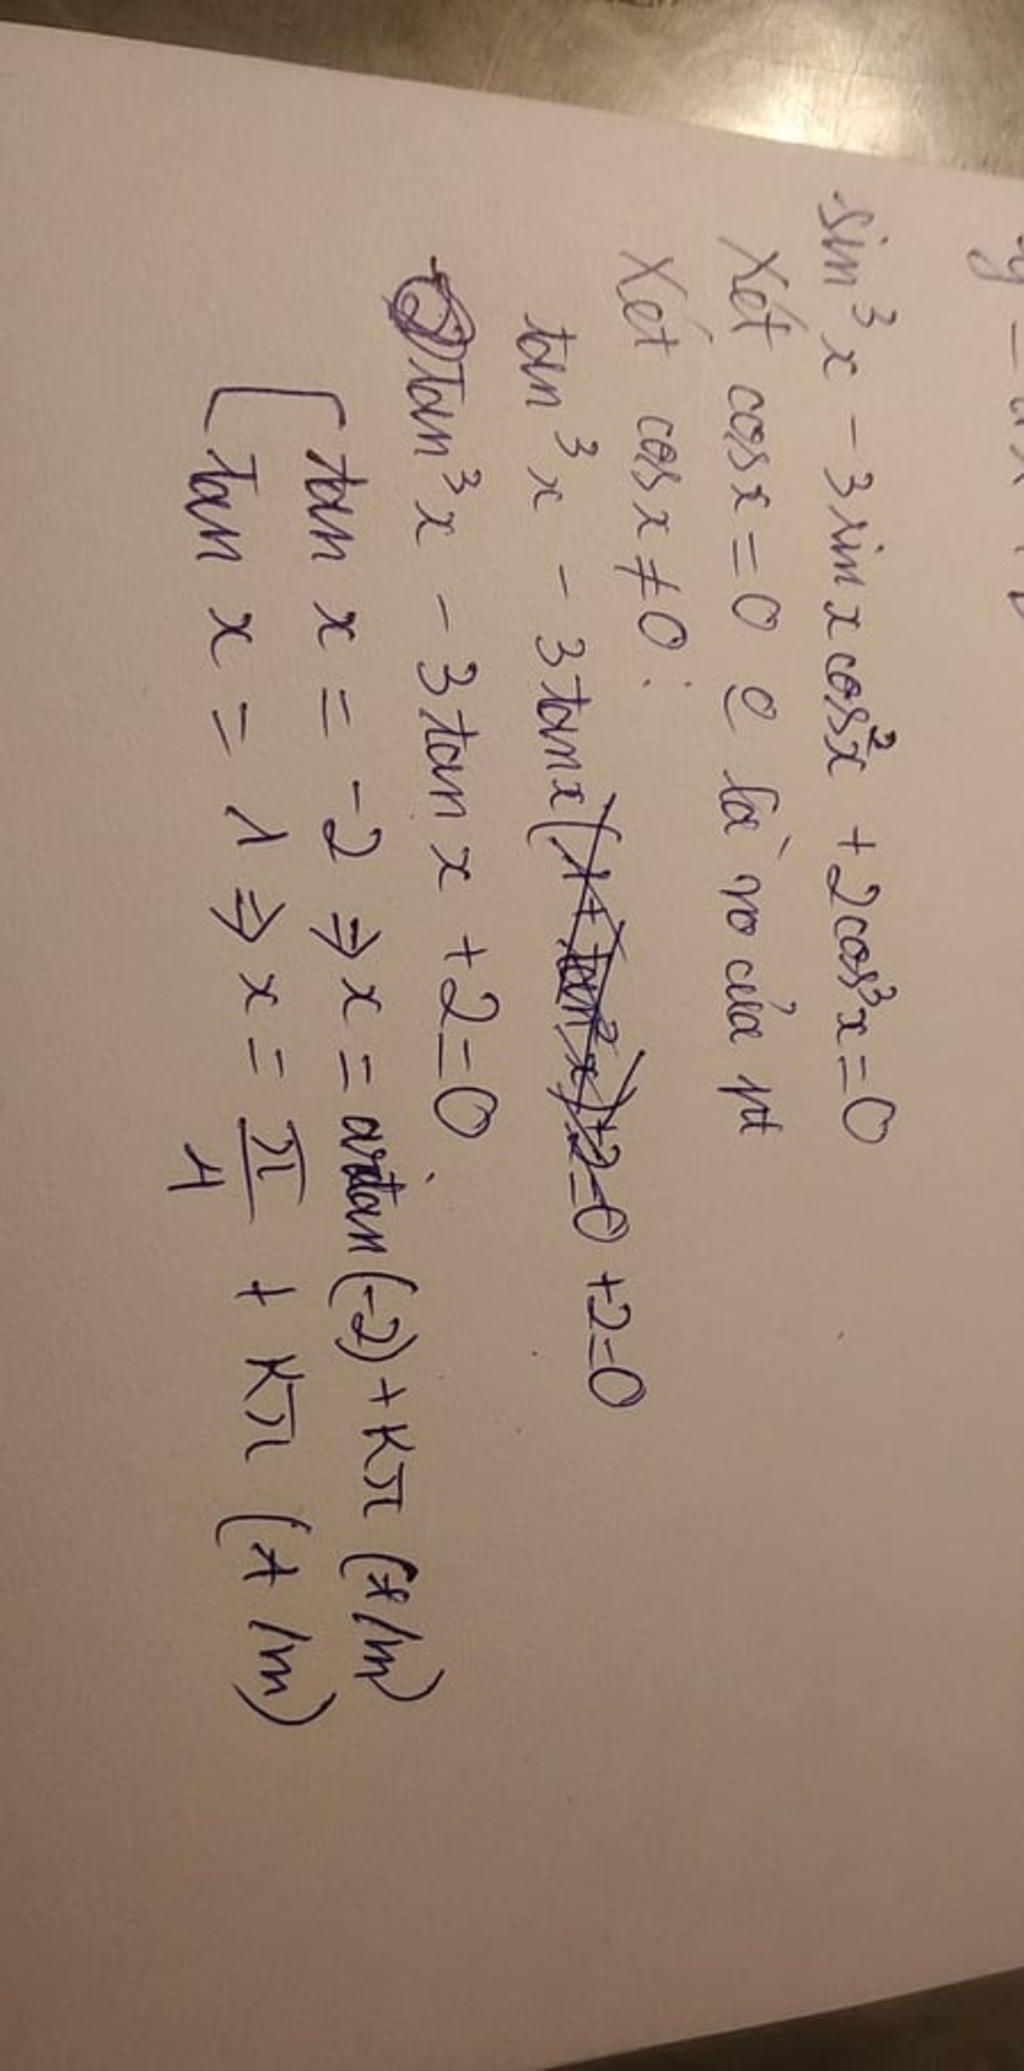 sin³x - 3sinxcos²x + 2cos³x = 0
Xét cosx = 0 là no của pt
Xét cosx ≠ 0:
tan³x - 3tanx(1 + tan²x) + 2 = 0 + 2 = 0
tan³x - 3tanx + 2 = 0
[ tan x = -2 ⇒ x = artan(-2) + kπ (t/m)
tan x = 1 ⇒ x = π/4 + kπ (t/m)